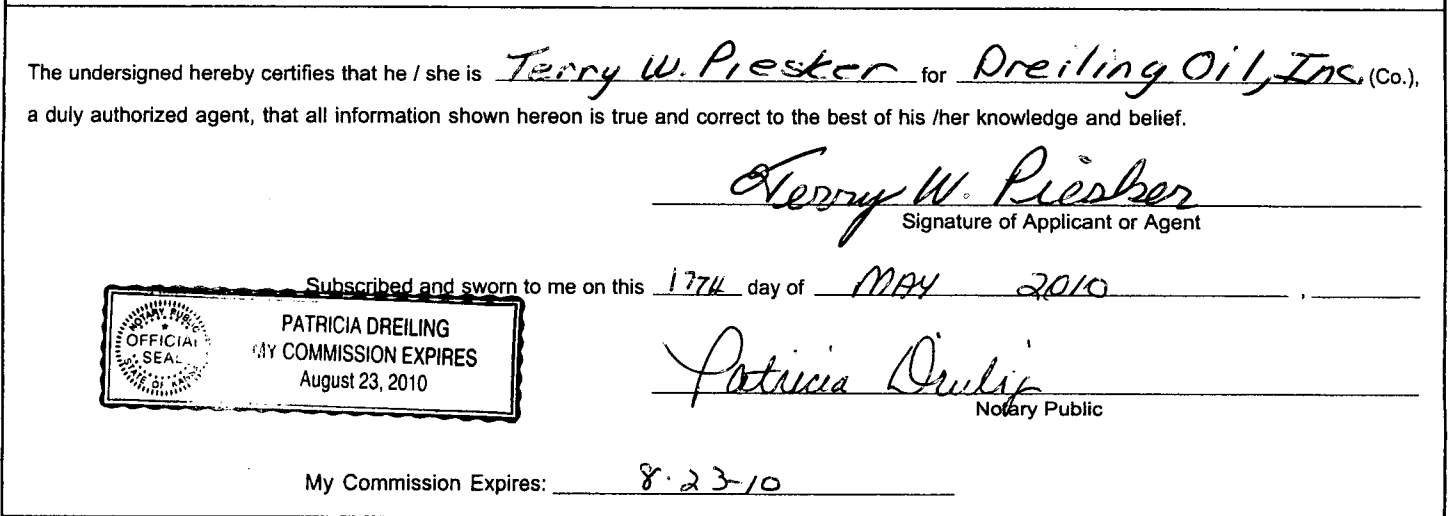 The undersigned hereby certifies that he / she is Terry W. Piesker for Dreiling Oil, Inc. (Co.),
a duly authorized agent, that all information shown hereon is true and correct to the best of his /her knowledge and belief.
Terry W. Piesker
Signature of Applicant or Agent
Subscribed and sworn to me on this 17TH day of MAY 2010 ,
NOTARY PUBLIC
OFFICIAL
SEAL
STATE OF KANSAS
PATRICIA DREILING
MY COMMISSION EXPIRES
August 23, 2010
Patricia Dreiling
Notary Public
My Commission Expires: 8-23-10